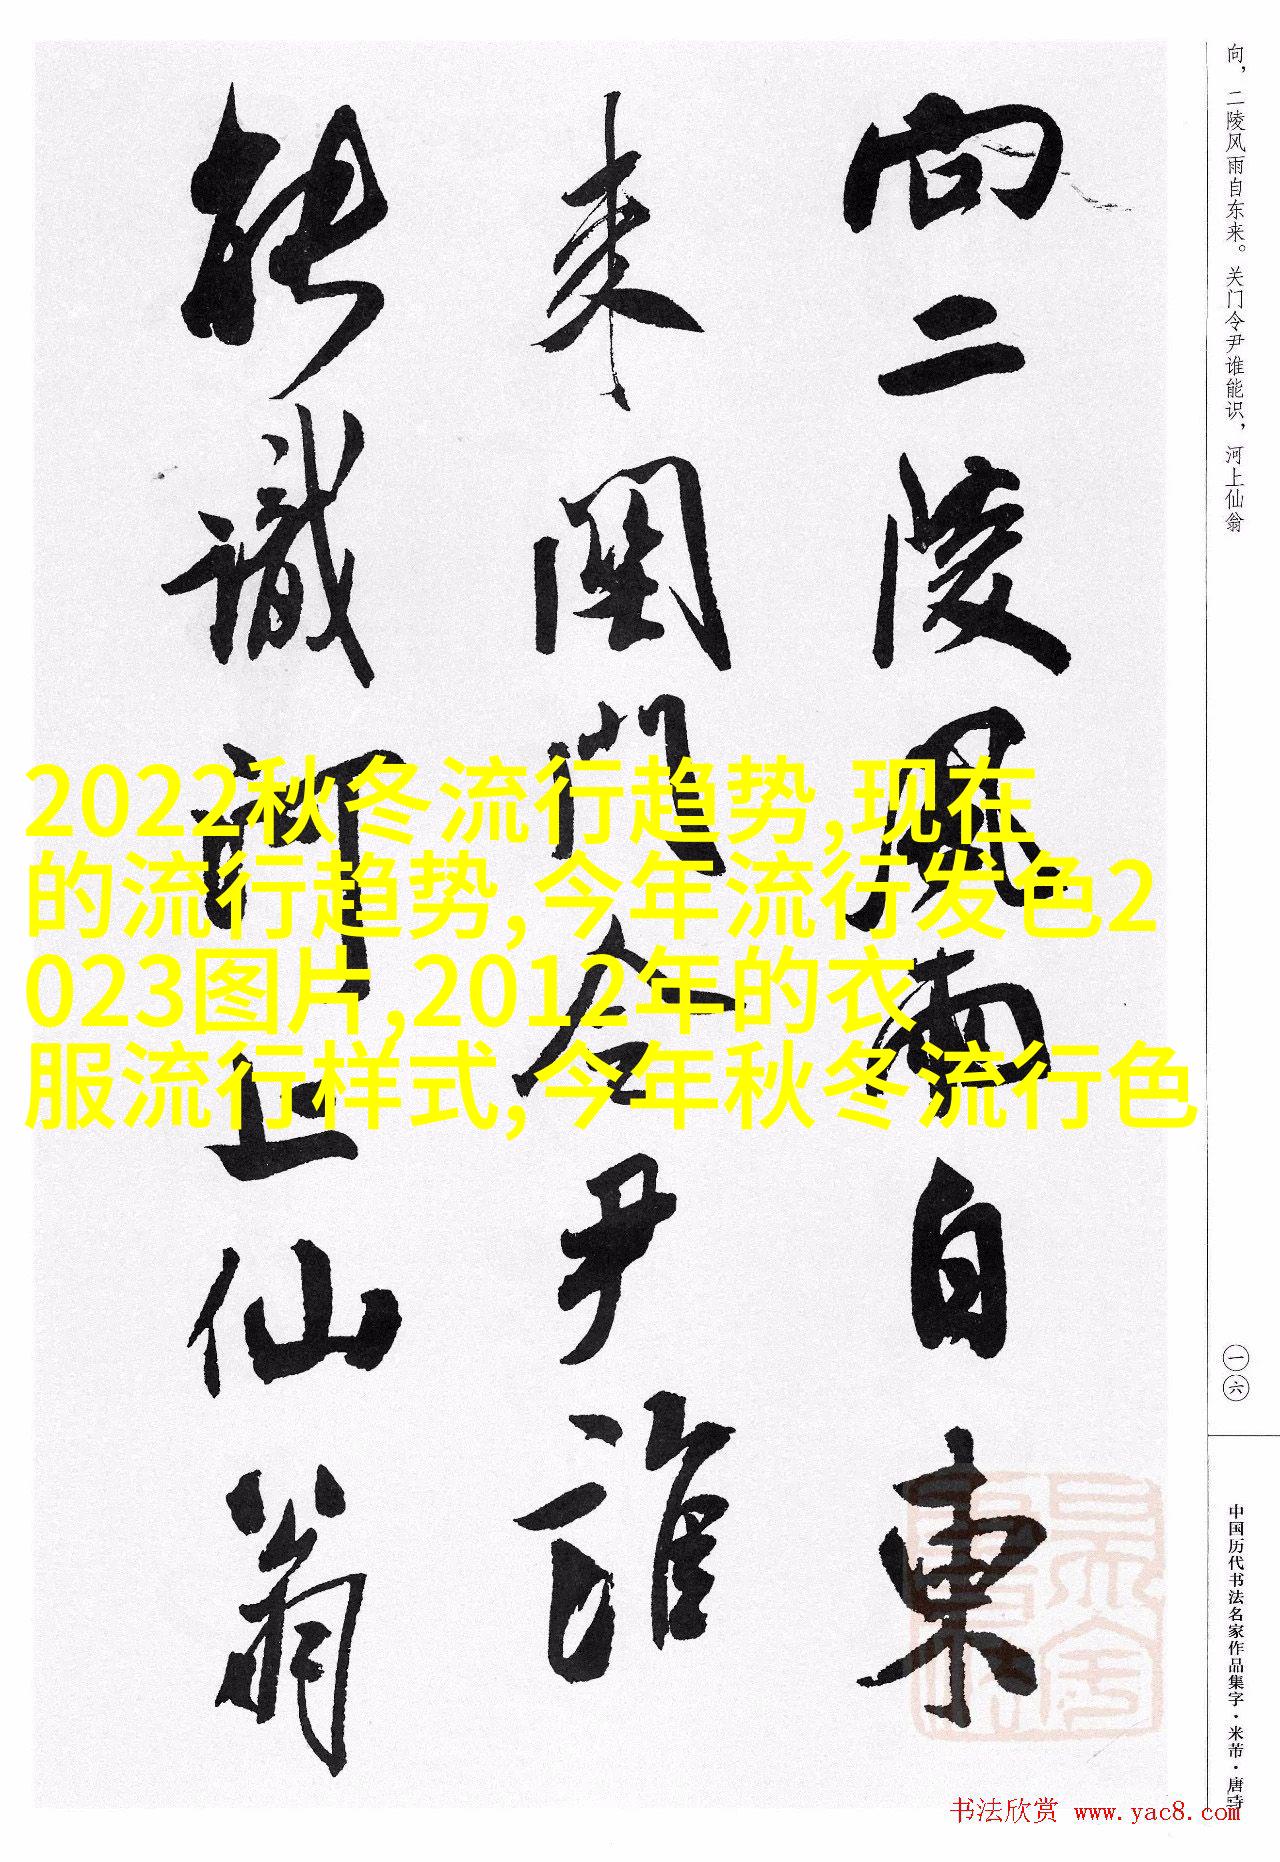 向二陵风雨自東
来関門令尹誰
能識河上仙翁
向，二陵风雨自东来。关门令尹谁能识，河上仙翁
一六
中国历代书法名家作品集字·米芾·唐诗
2022秋冬流行趋势,现在
的流行趋势,今年流行发色2
023图片,2012年的衣
服流行样式,今年秋冬流行色
书法欣赏 www.yac8.com